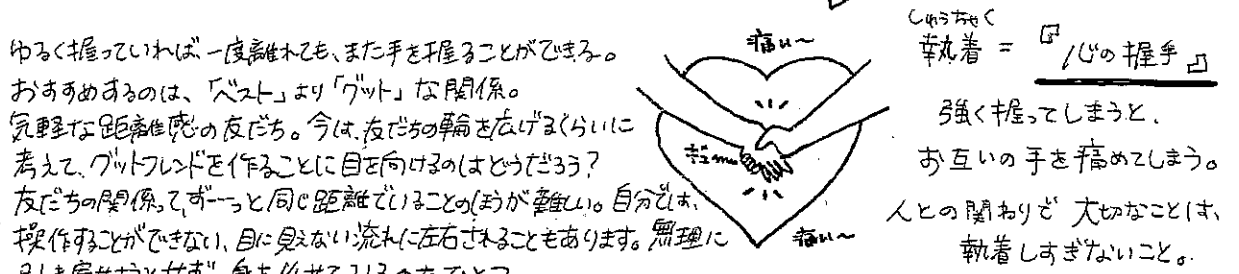 ゆるく握っていれば、一度離れても、また手を握ることができる。
おすすめするのは、「ベスト」より「グット」な関係。
気軽な距離感の友だち。今は、友だちの輪を広げるくらいに
考えて、グットフレンドを作ることに目を向けるのはどうだろう？
友だちの関係って、ずーっと同じ距離でいることのほうが難しい。自分では、
操作することができない、目に見えない流れに左右されることもあります。無理に
痛い〜
ギュー
痛い〜
しゅうちゃく
執着 = 『心の握手』
強く握ってしまうと、
お互いの手を痛めてしまう。
人との関わりで 大切なことは、
執着しすぎないこと。